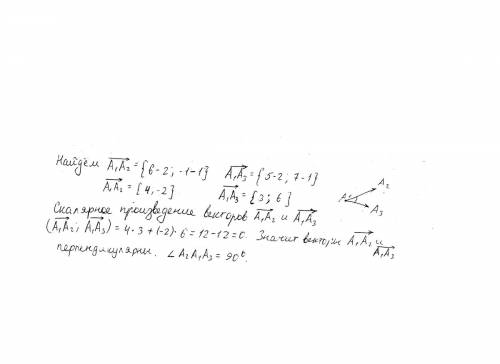 Найдём A₁A₂ = {6-2; -1-1} A₁A₃ = {5-2; 7-1}
A₁A₂ = {4, -2} A₁A₃ = {3; 6}
A₂
A₁
A₃
Скалярное произведение векторов A₁A₂ и A₁A₃
(A₁A₂; A₁A₃) = 4·3 + (-2)·6 = 12-12 = 0. Значит векторы A₁A₂ и A₁A₃
перпендикулярны. ∠A₂A₁A₃ = 90°.